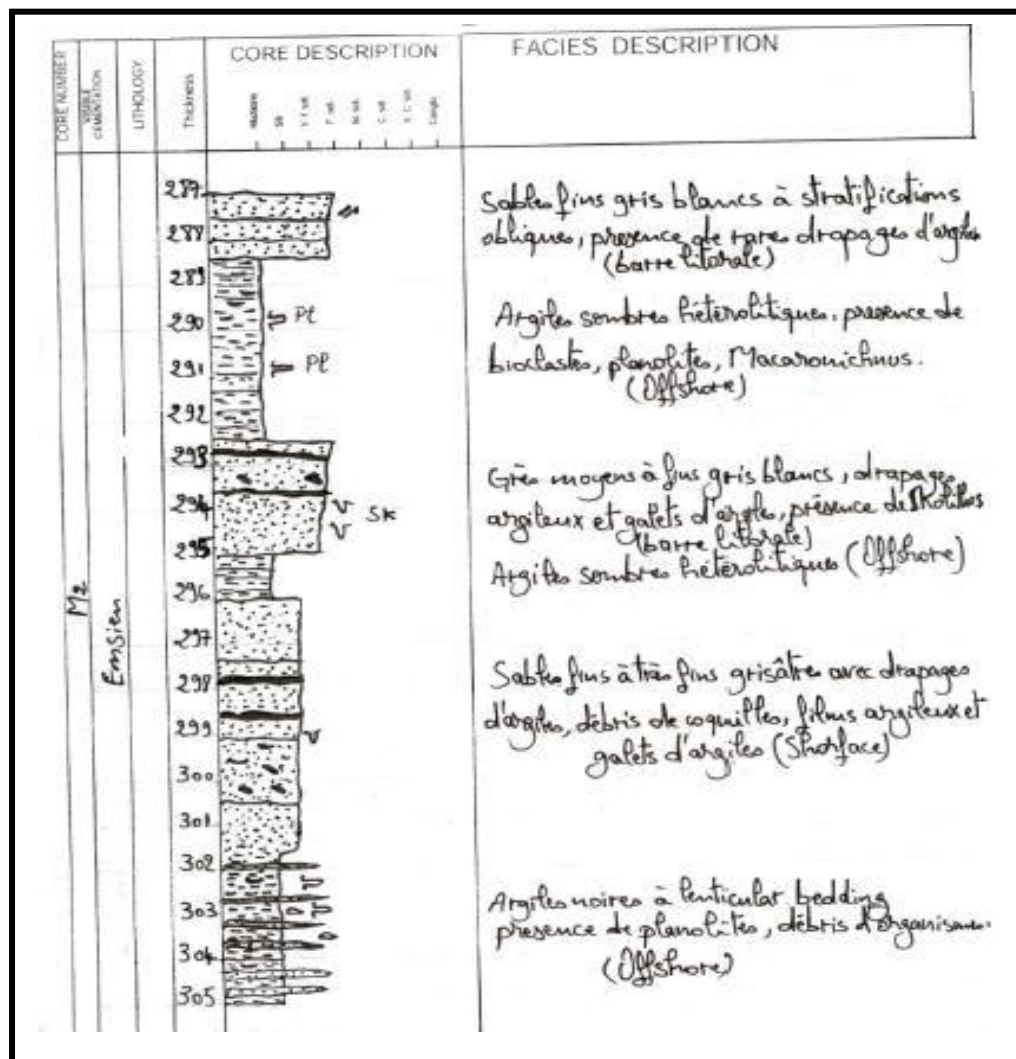 CORE NUMBER
VISIBLE CEMENTATION
LITHOLOGY
Thickness
CORE DESCRIPTION
FACIES DESCRIPTION
287
288
289
290
291
292
293
294
295
296
297
298
299
300
301
302
303
304
305
M2
Emsien
Pl
Pl
SK
Sables fins gris blancs à stratifications
obliques, presence de rares drapages d'argiles
(barre litorale)
Argiles sombres hétérolitiques, presence de
bioclastes, planolites, Macaronichnus.
(Offshore)
Grès moyens à fins gris blancs, drapages
argileux et galets d'argiles, présence de
(barre litorale)
Argiles sombres hétérolitiques (Offshore)
Sables fins à très fins grisâtres avec drapages
d'argiles, débris de coquilles, films argileux et
galets d'argiles (Shorface)
Argiles noires à lenticular bedding
presence de planolites, débris d'organismes.
(Offshore)